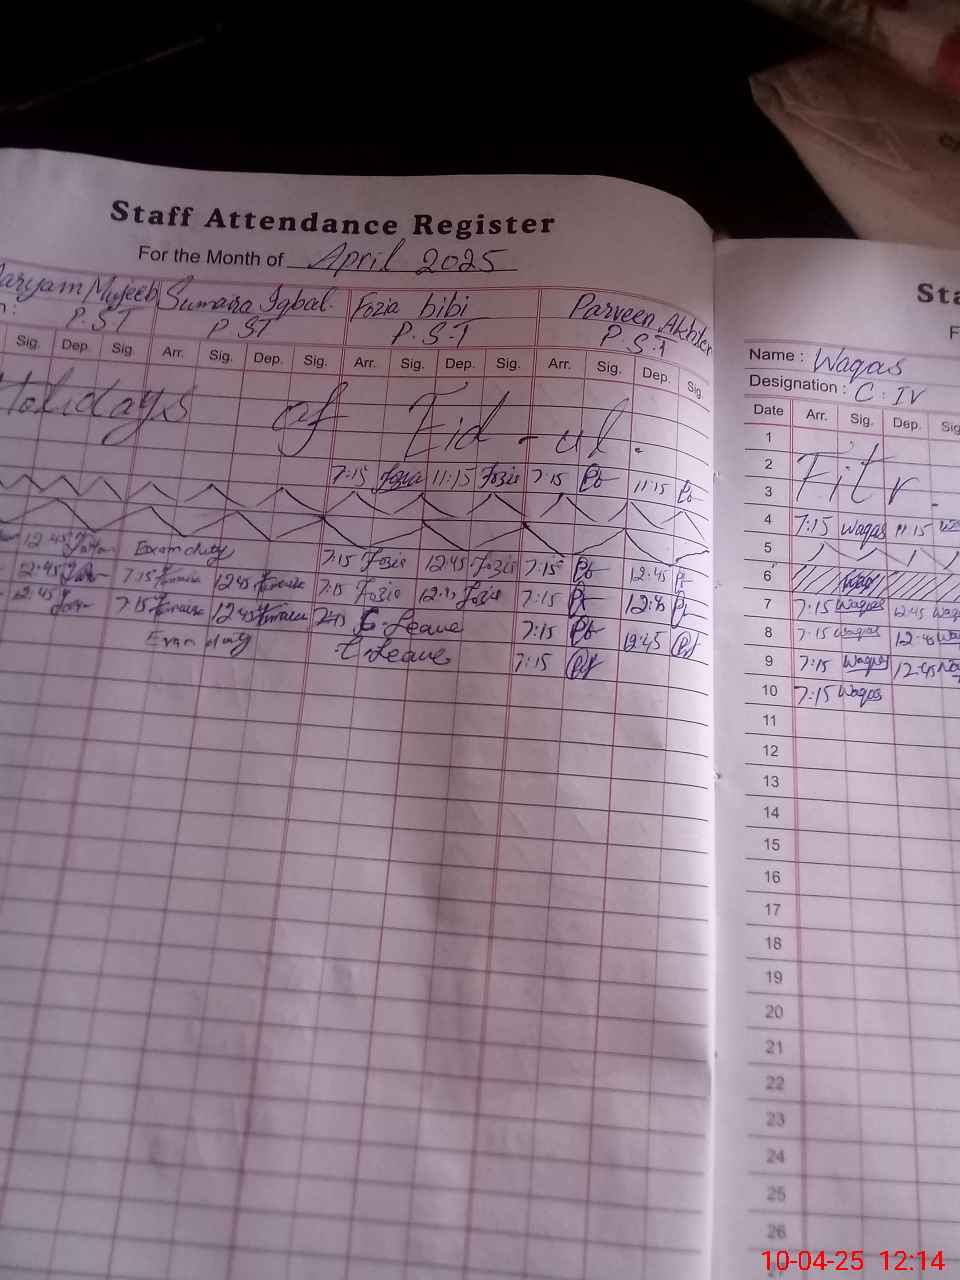 Staff Attendance Register
For the Month of April 2025
Maryam Mujeeb Sumaira Iqbal. Fozia bibi Parveen Akhter
P.S.T P.ST P.S.T P.S.T
Sig. Dep. Sig. Arr. Sig. Dep. Sig. Arr. Sig. Dep. Sig. Arr. Sig. Dep. Sig.
Holidays of Eid-ul.
7:15 Fozia 11:15 Fozia 7:15 Pb 11:15 Pb
12:45 Exam duty 7:15 Fozia 12:45 Fozia 7:15 Pb 12:45
12:45 7:15 12:45 7:15 Fozia Fozia 7:15
12:45 7:15 12:45 C-Leave 7:15 12:45
Exam duty C Leave 7:15
Sta
F
Name : Waqas
Designation : C : IV
Date Arr. Sig. Dep. Sig
1
2 Fitr.
3
4 7:15 Waqas 11:15
5
6
7 7:15 Waqas 12:45 Waq
8 7:15 Waqas 12:45 Wa
9 7:15 Waqas 12:45
10 7:15 Waqas
11
12
13
14
15
16
17
18
19
20
21
22
23
24
25
26
10-04-25 12:14